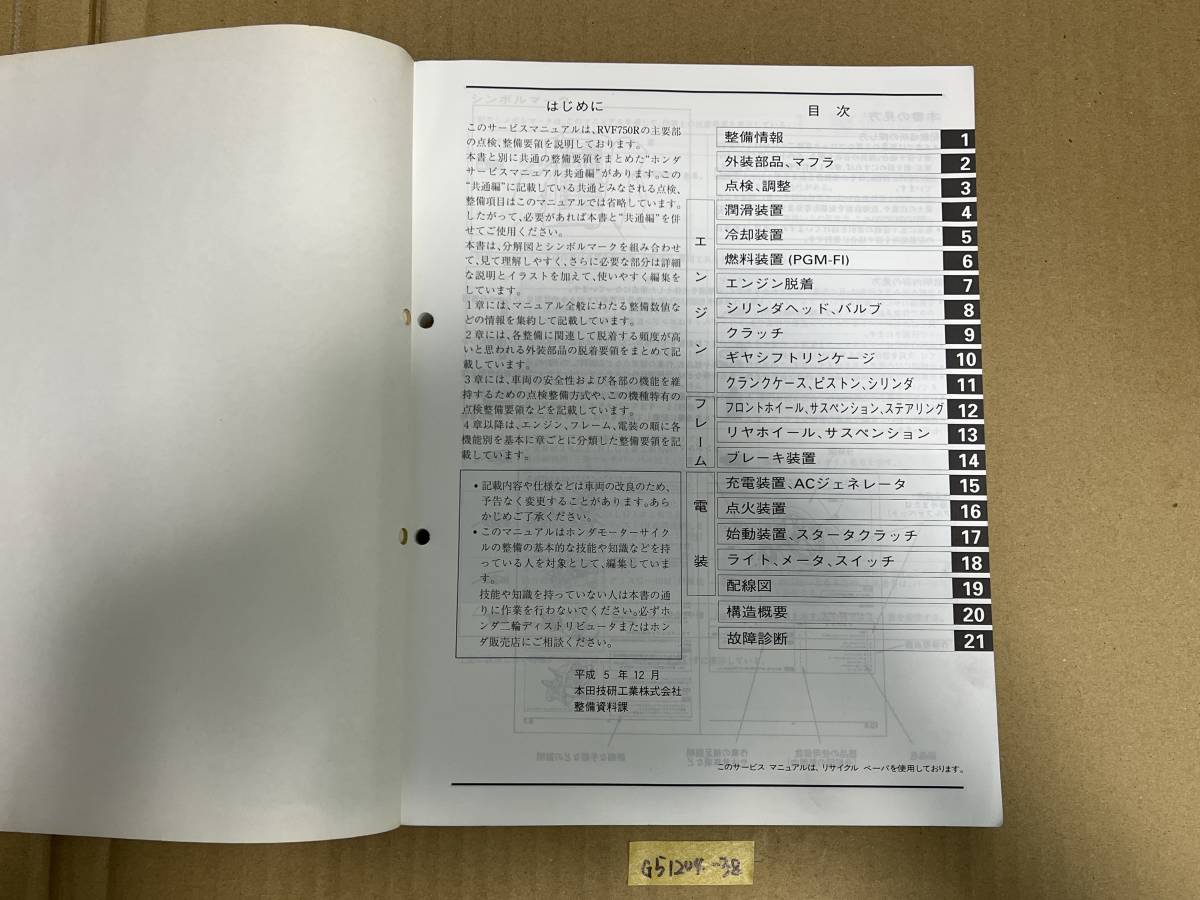 はじめに
このサービスマニュアルは、RVF750Rの主要部
の点検、整備要領を説明しております。
本書と別に共通の整備要領をまとめた"ホンダ
サービスマニュアル共通編"があります。この
"共通編"に記載している共通とみなされる点検、
整備項目はこのマニュアルでは省略しています。
したがって、必要があれば本書と"共通編"を併
せてご使用ください。
本書は、分解図とシンボルマークを組み合わせ
て、見て理解しやすく、さらに必要な部分は詳細
な説明とイラストを加えて、使いやすく編集を
しています。
1章には、マニュアル全般にわたる整備数値な
どの情報を集約して記載しています。
2章には、各整備に関連して脱着する頻度が高
いと思われる外装部品の脱着要領をまとめて記
載しています。
3章には、車両の安全性および各部の機能を維
持するための点検整備方式や、この機種特有の
点検整備要領などを記載しています。
4章以降は、エンジン、フレーム、電装の順に各
機能別を基本に章ごとに分類した整備要領を記
載しています。
• 記載内容や仕様などは車両の改良のため、
予告なく変更することがあります。あら
かじめご了承ください。
• このマニュアルはホンダモーターサイク
ルの整備の基本的な技能や知識などを持
っている人を対象として、編集していま
す。
技能や知識を持っていない人は本書の通
りに作業を行わないでください。必ずホ
ンダ二輪ディストリビュータまたはホン
ダ販売店にご相談ください。
平成 5 年 12 月
本田技研工業株式会社
整備資料課
目 次
整備情報 1
外装部品、マフラ 2
点検、調整 3
エンジン
潤滑装置 4
冷却装置 5
燃料装置(PGM-FI) 6
エンジン脱着 7
シリンダヘッド、バルブ 8
クラッチ 9
ギヤシフトリンケージ 10
クランクケース、ピストン、シリンダ 11
フレーム
フロントホイール、サスペンション、ステアリング 12
リヤホイール、サスペンション 13
ブレーキ装置 14
電装
充電装置、ACジェネレータ 15
点火装置 16
始動装置、スタータクラッチ 17
ライト、メータ、スイッチ 18
配線図 19
構造概要 20
故障診断 21
このサービス マニュアルは、リサイクル ペーパを使用しております。
G51204-38